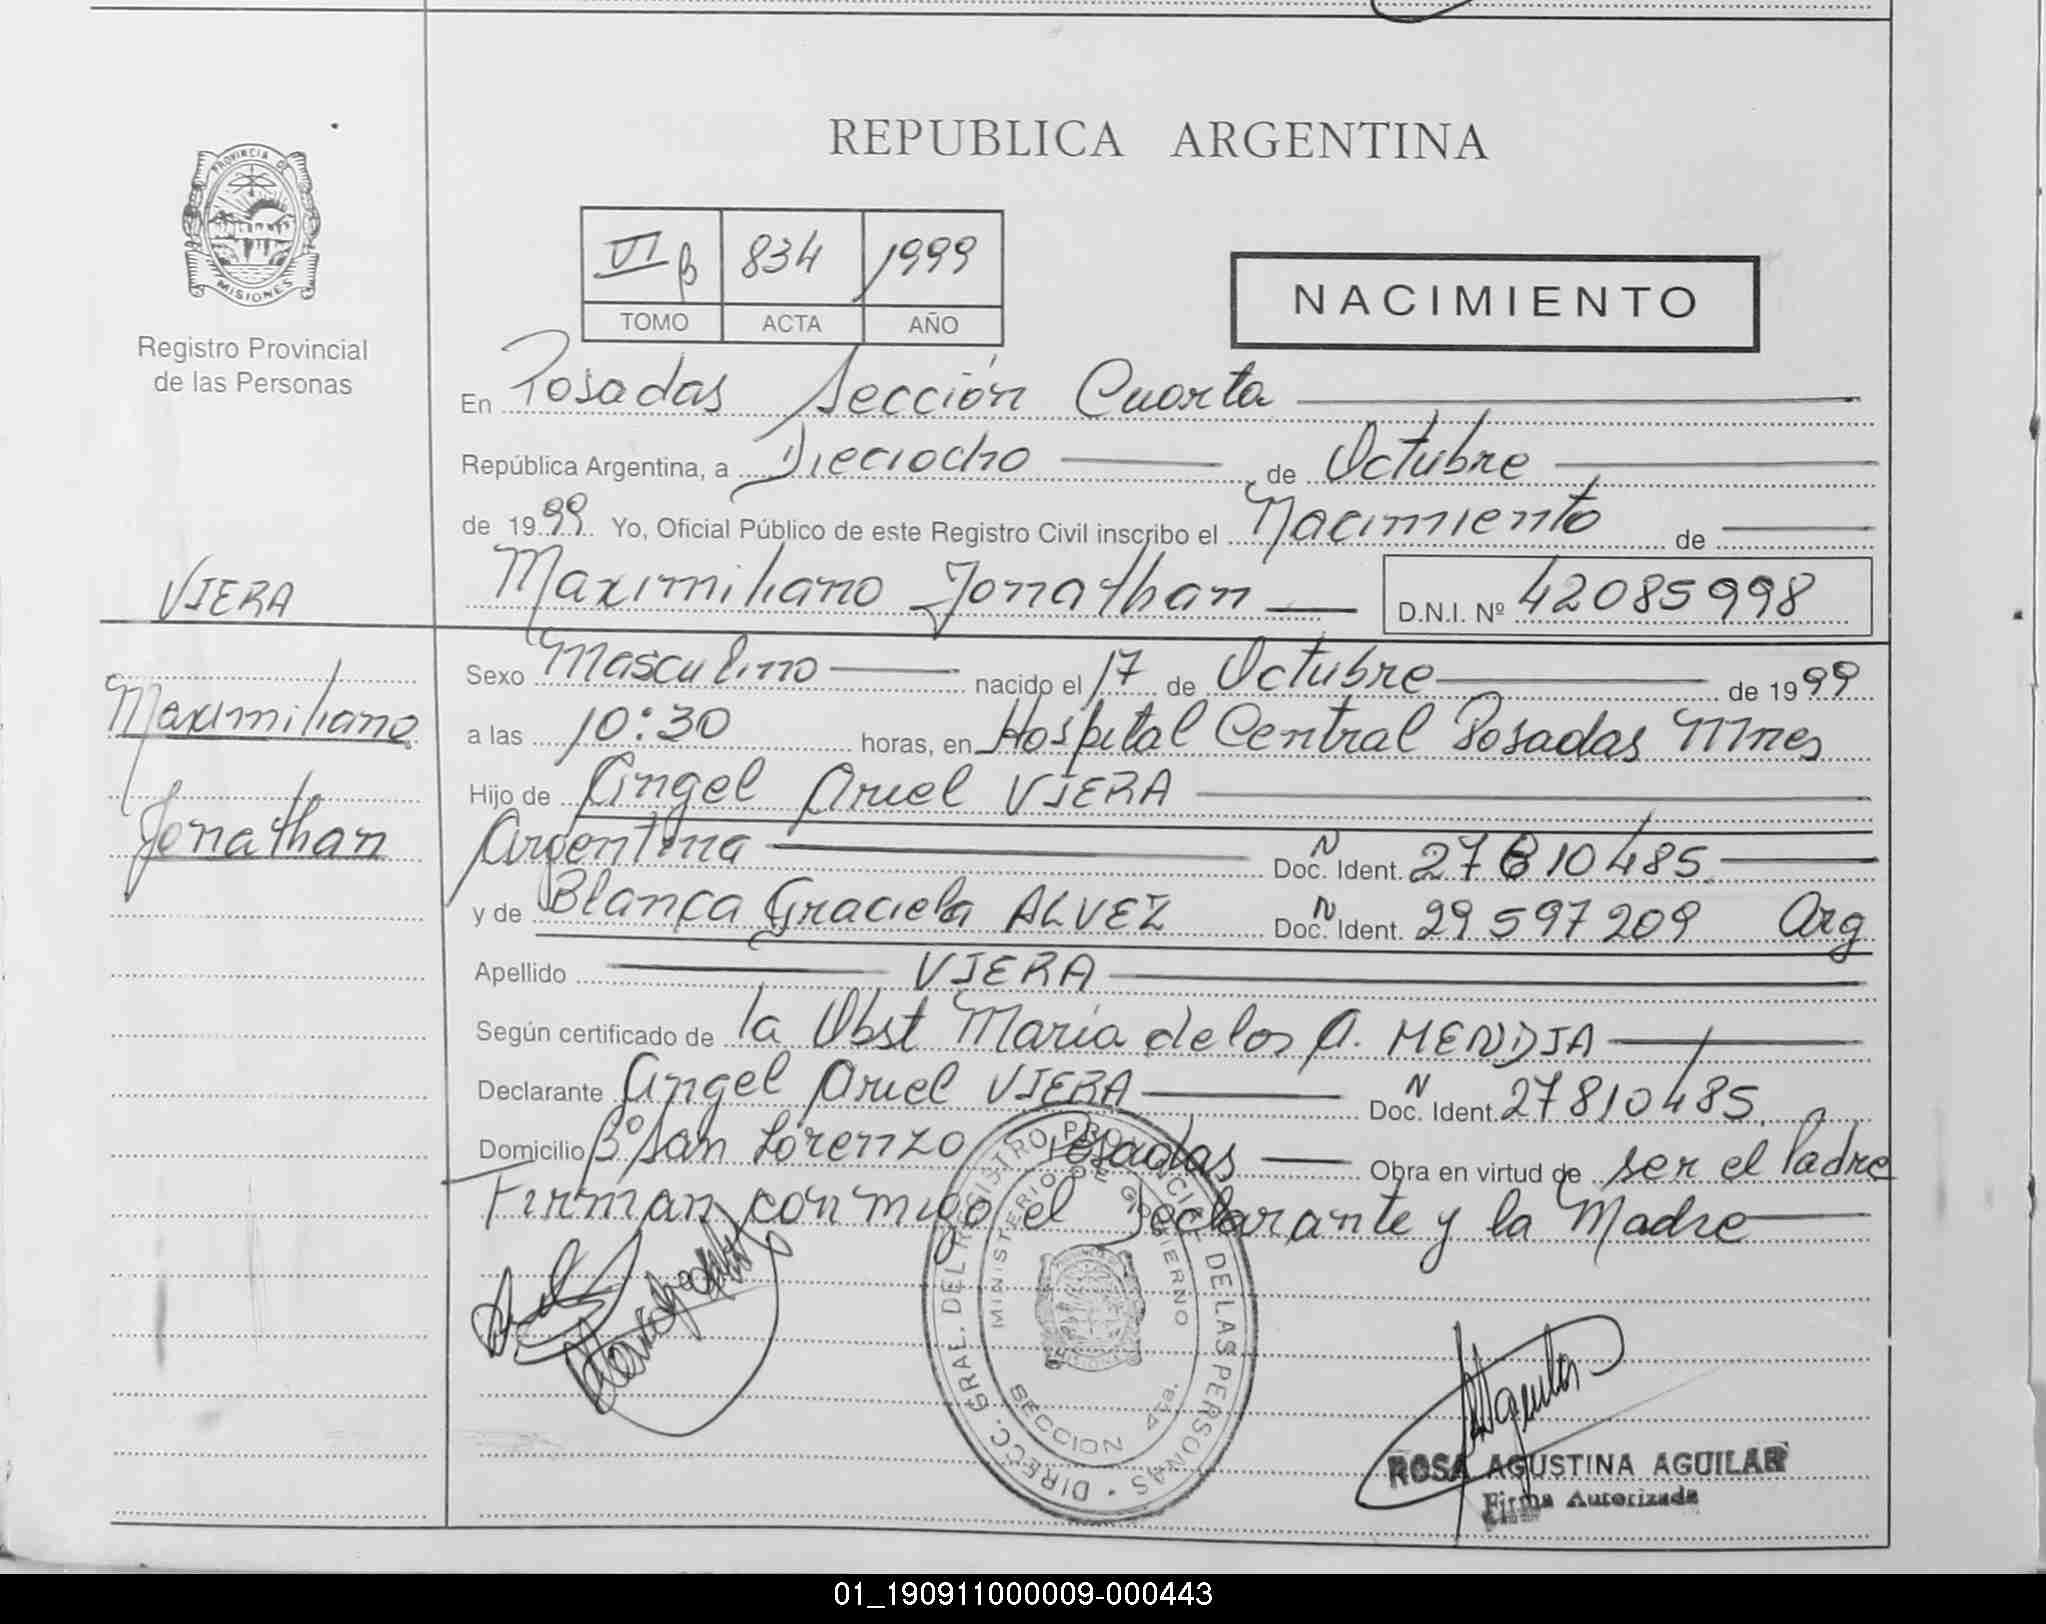 REPUBLICA ARGENTINA
PROVINCIA DE
MISIONES
Registro Provincial
de las Personas
VI B 834 1999
TOMO ACTA AÑO
NACIMIENTO
En Posadas Sección Cuarta
República Argentina, a Dieciocho de Octubre
de 1999 Yo, Oficial Público de este Registro Civil inscribo el Nacimiento de
Maximiliano Jonathan D.N.I. Nº 42085998
VIERA
Maximiliano
Jonathan
Sexo Masculino nacido el 17 de Octubre de 1999
a las 10:30 horas, en Hospital Central Posadas Mnes
Hijo de Angel Ariel VIERA
Argentina Doc. N Ident. 27810485
y de Blanca Graciela ALVEZ Doc. N Ident. 29597209 Arg
Apellido VIERA
Según certificado de la Obst Maria de los A. MENDIA
Declarante Angel Ariel VIERA Doc. N Ident. 27810485
Domicilio Bº San Lorenzo Posadas Obra en virtud de ser el Padre
Firman conmigo el Declarante y la Madre
DIRECC. GRAL. DEL REGISTRO PROVINCIAL DE LAS PERSONAS
MINISTERIO DE GOBIERNO
SECCION 4ta.
ROSA AGUSTINA AGUILAR
Firma Autorizada
01_190911000009-000443